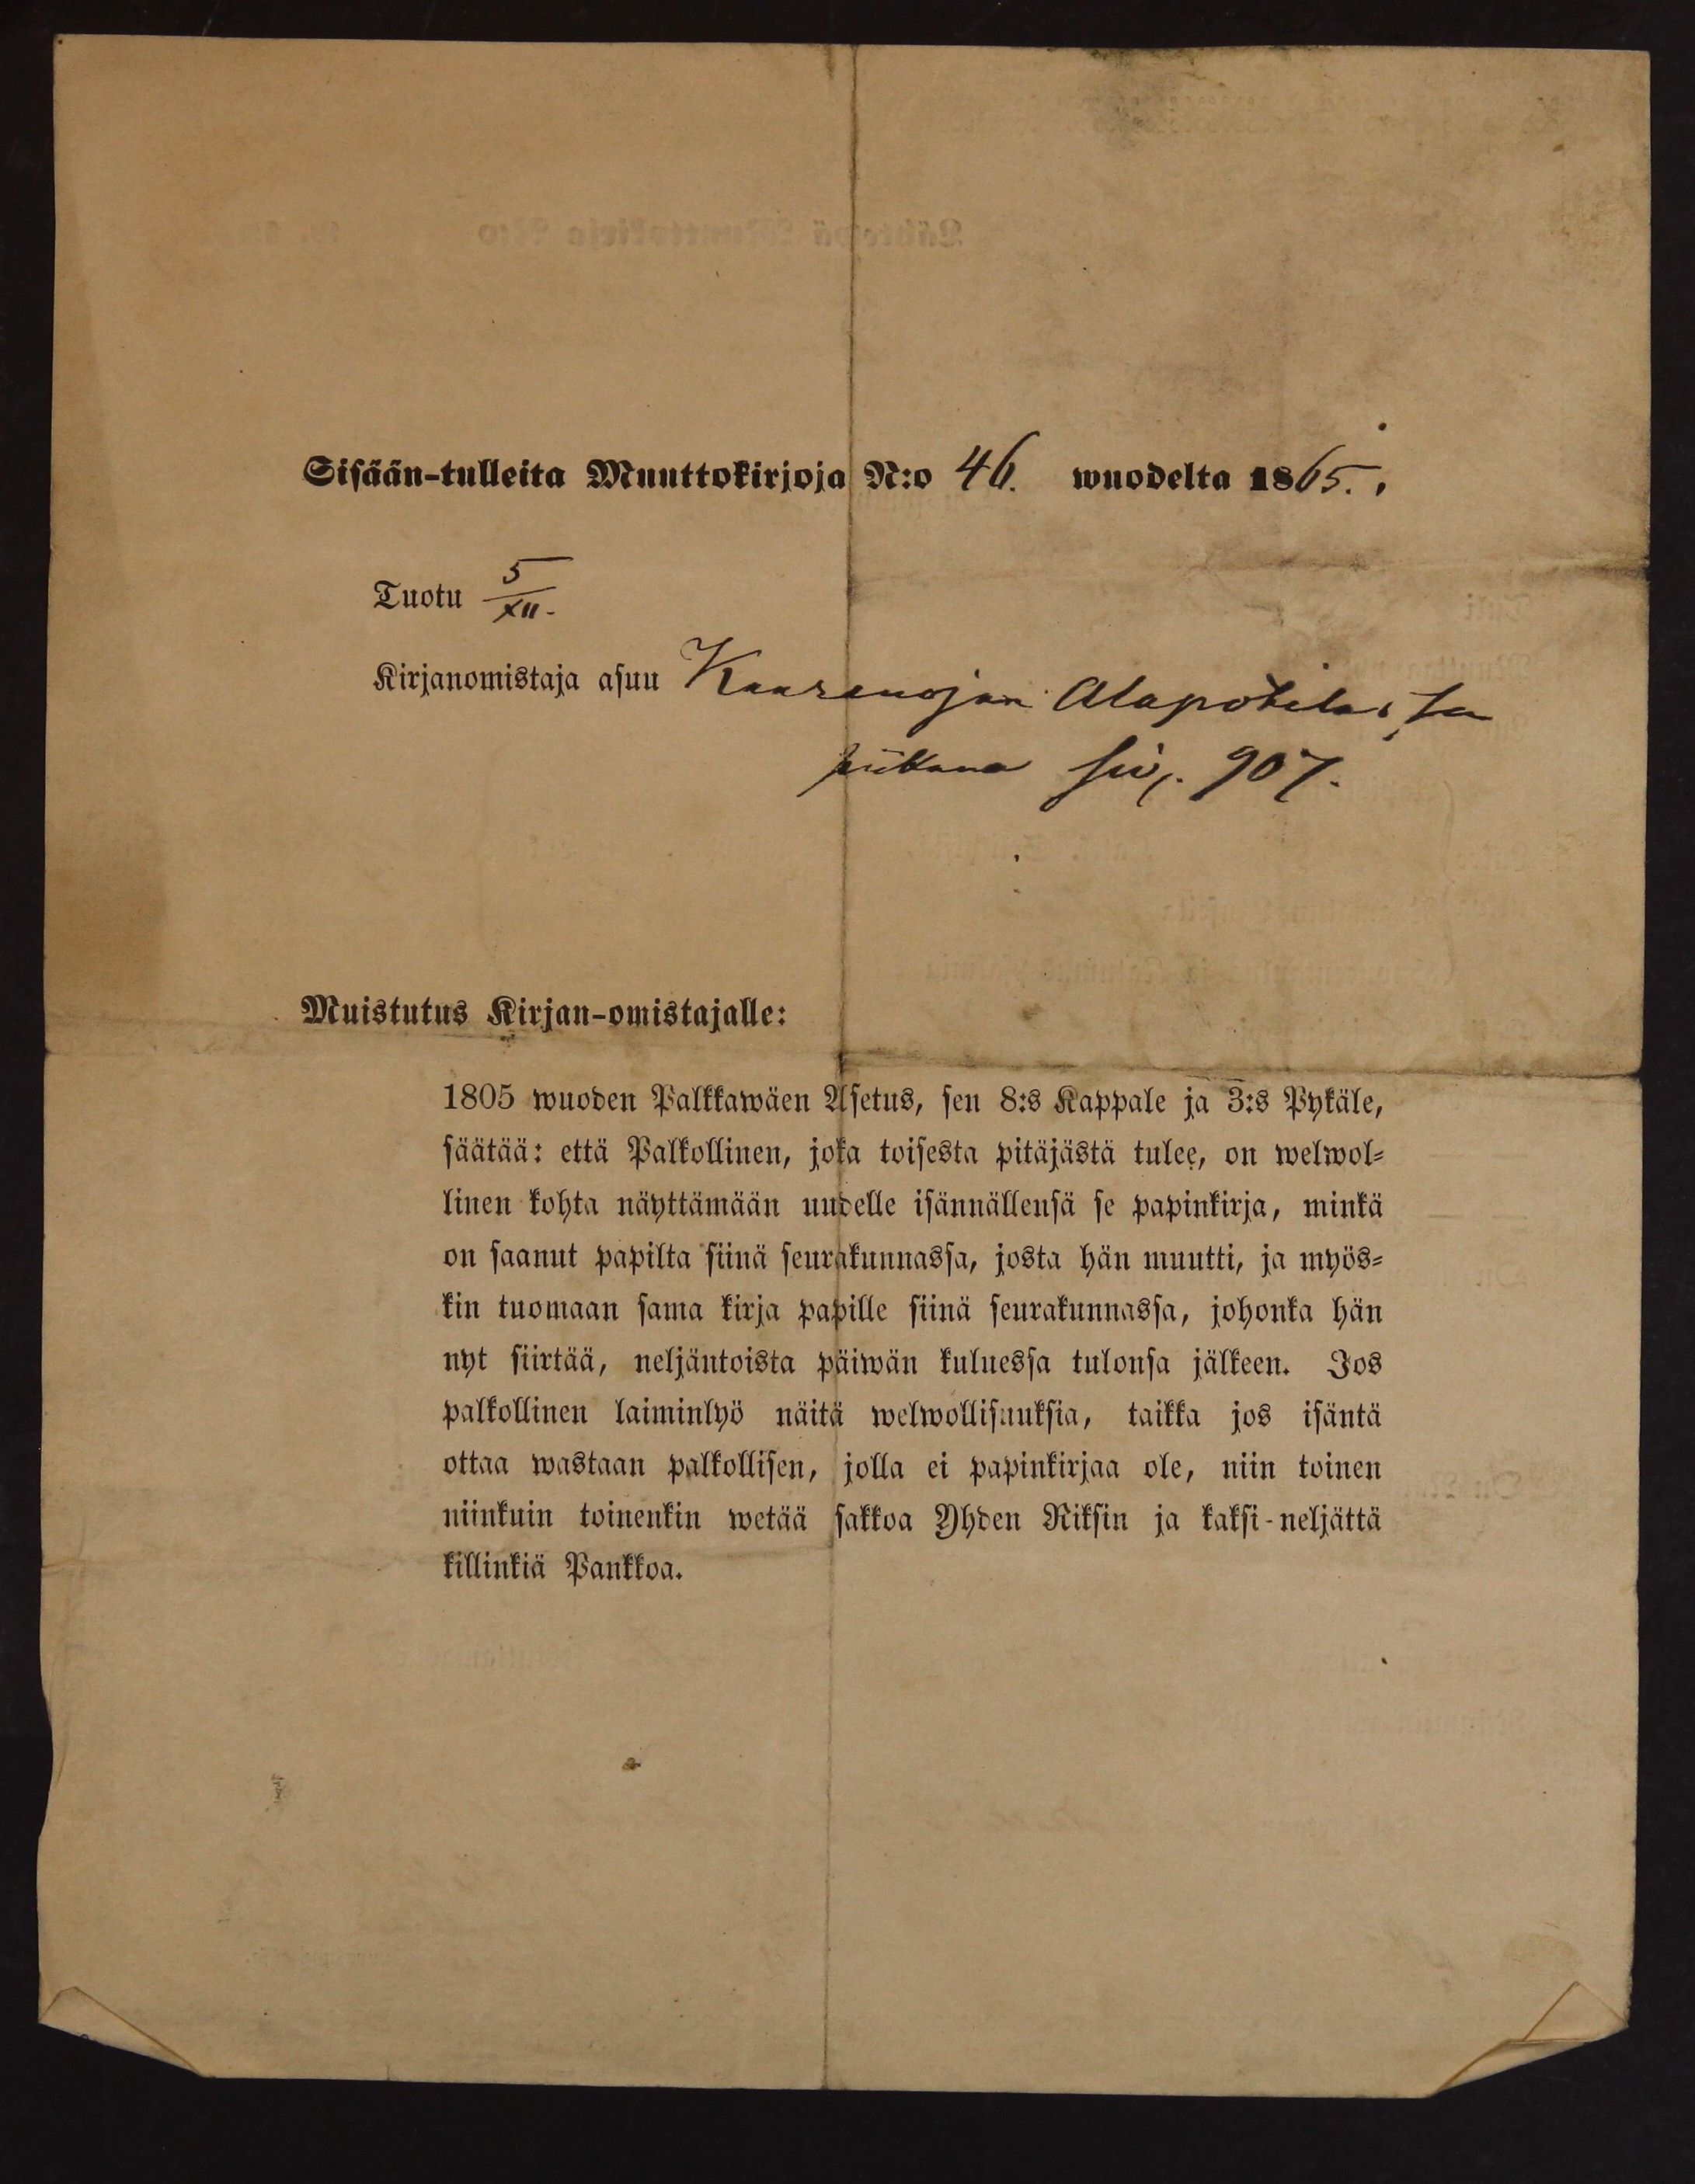 Sisään-tulleita Muuttokirjoja N:o 46. wuodelta 1865.
Tuotu 5/XII.
Kirjanomistaja asuu Kaarenojan Alapôtila,sa
piikana siv. 907.
Muistutus Kirjan-omistajalle:
1805 wuoden Palkkawäen Asetus, sen 8:s Kappale ja 3:s Pykäle,
säätää: että Palkollinen, joka toisesta pitäjästä tulee, on welwol-
linen kohta näyttämään uudelle isännällensä se papinkirja, minkä
on saanut papilta siinä seurakunnassa, josta hän muutti, ja myös-
kin tuomaan sama kirja papille siinä seurakunnassa, johonka hän
nyt siirtää, neljäntoista päiwän kuluessa tulonsa jälkeen. Jos
palkollinen laiminlyö näitä welwollisuuksia, taikka jos isäntä
ottaa wastaan palkollisen, jolla ei papinkirjaa ole, niin toinen
niinkuin toinenkin wetää sakkoa Yhden Riksin ja kaksi-neljättä
killinkiä Pankkoa.